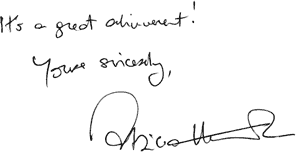 It's a great achievement!
Yours sincerely,